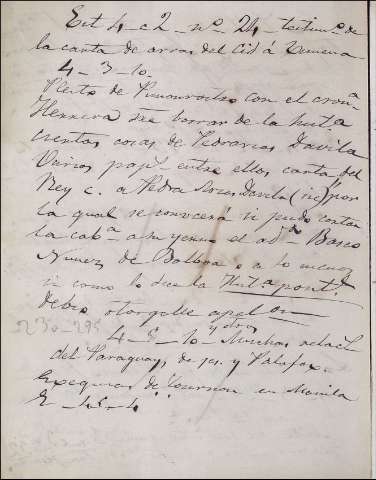 Est 4 - c 2 - nº 24 - testimº de
la carta de arras del Cid á Ximena
4 - 3 - 10
Pleito de Punonrostro con el cronª
Herrera sre borrar de la histª
ciertas cosas de Pedrarias Davila
Varios papˢ entre ellos carta del
Rey c. a Pedra Arias Davila (sic) "por
la qual se conocerá si pudo cortar
la cabª a su yerno el adº Basco
Nuñez de Balboa o a lo menos
si como lo dice la Histª pontˡ
debio otorgalle apelon
230-295
4 - 5 - 10 - Muchos relacˢ
y docs
del Paraguay, de jes. y Palafox.
Exequias de Tournon en Manila
E - 45 - 4